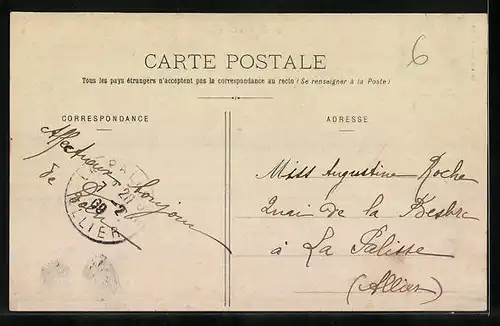 6
CARTE POSTALE
Tous les pays étrangers n'acceptent pas la correspondance au recto (Se renseigner à la Poste)
CORRESPONDANCE
ADRESSE
Affectueux bonjour
de
Miss Augustine Roche
Quai de la Besbre
à La Palisse
(Allier)
7 - 2
09
ALLIER